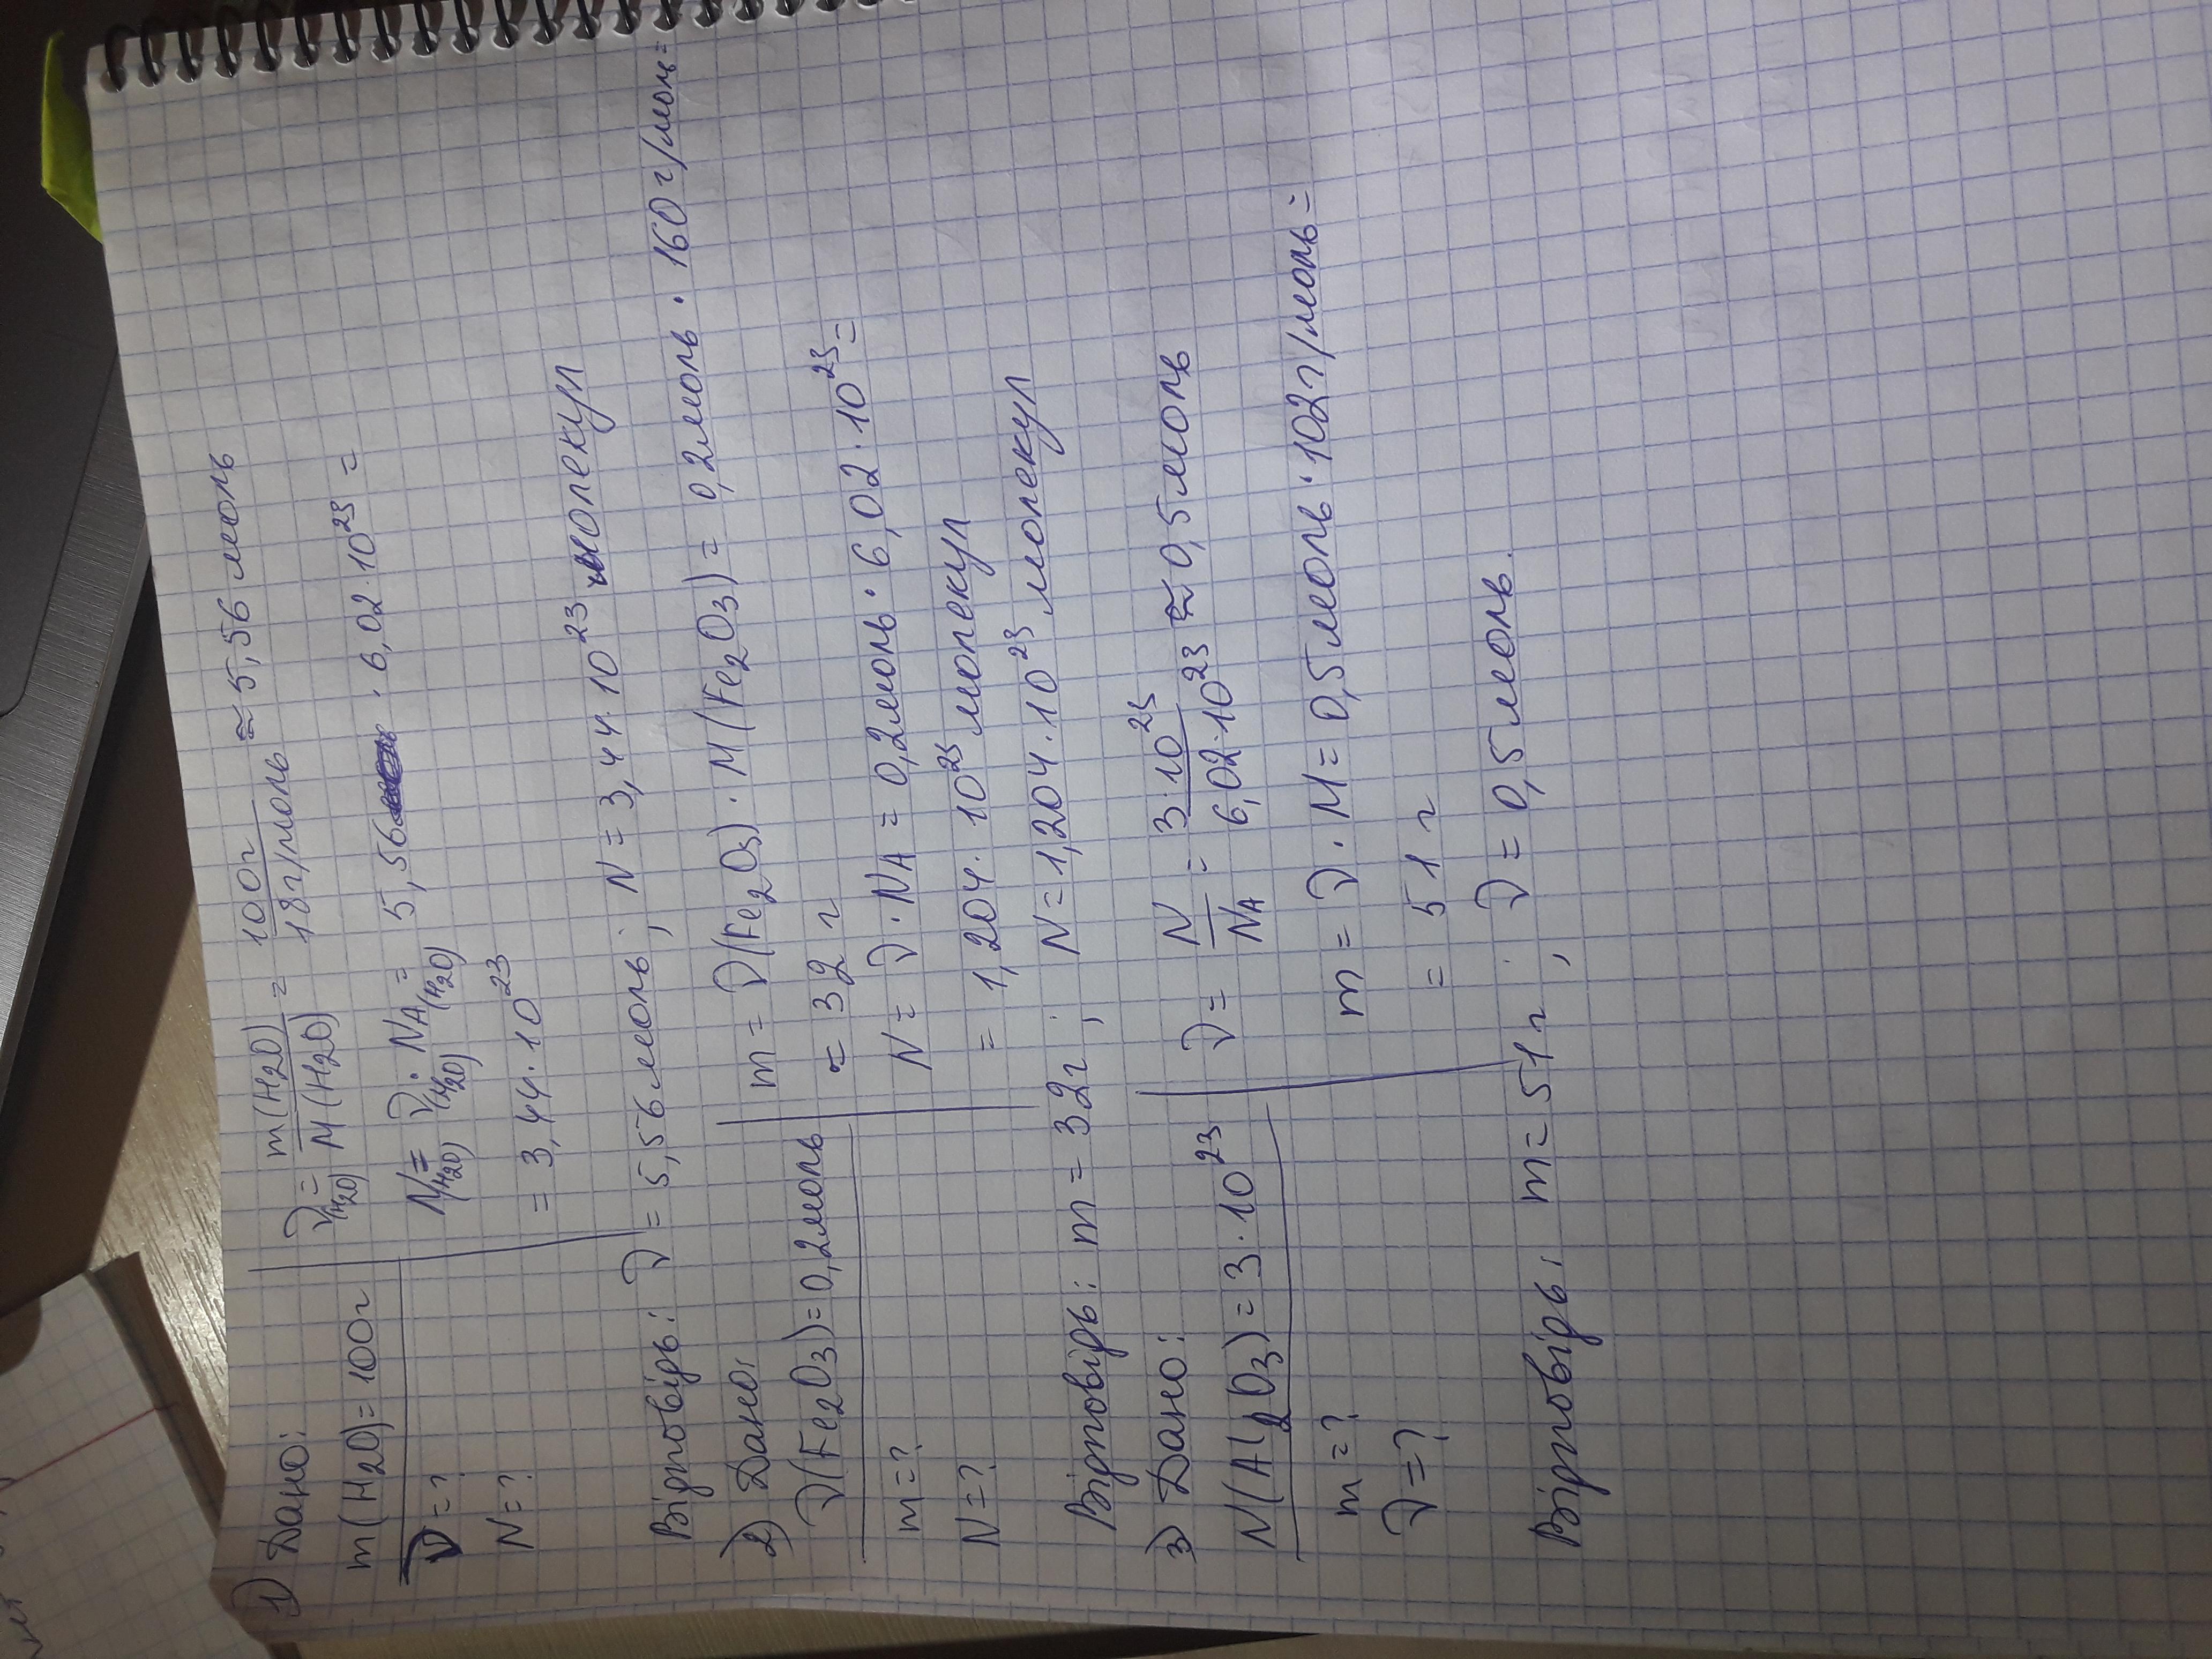 1) Дано:
m(H₂O)=100г
ν=?
N=?
ν(H₂O) = m(H₂O)/M(H₂O) = 100г/18г/моль ≈ 5,56 моль
N(H₂O) = ν(H₂O) · NA(H₂O) = 5,56 · 6,02·10²³ =
= 3,44·10²³
Відповідь: ν = 5,56 моль; N = 3,44·10²³ молекул
2) Дано:
ν(Fe₂O₃)=0,2моль
m=?
N=?
m = ν(Fe₂O₃) · M(Fe₂O₃) = 0,2моль · 160г/моль =
= 32 г
N = ν · NA = 0,2моль · 6,02·10²³ =
= 1,204·10²³ молекул
Відповідь: m = 32г; N = 1,204·10²³ молекул
3) Дано:
N(Al₂O₃) = 3·10²³
m=?
ν=?
ν = N/NA = 3·10²³/6,02·10²³ ≈ 0,5моль
m = ν · M = 0,5моль · 102г/моль =
= 51 г
Відповідь: m = 51г; ν = 0,5моль.